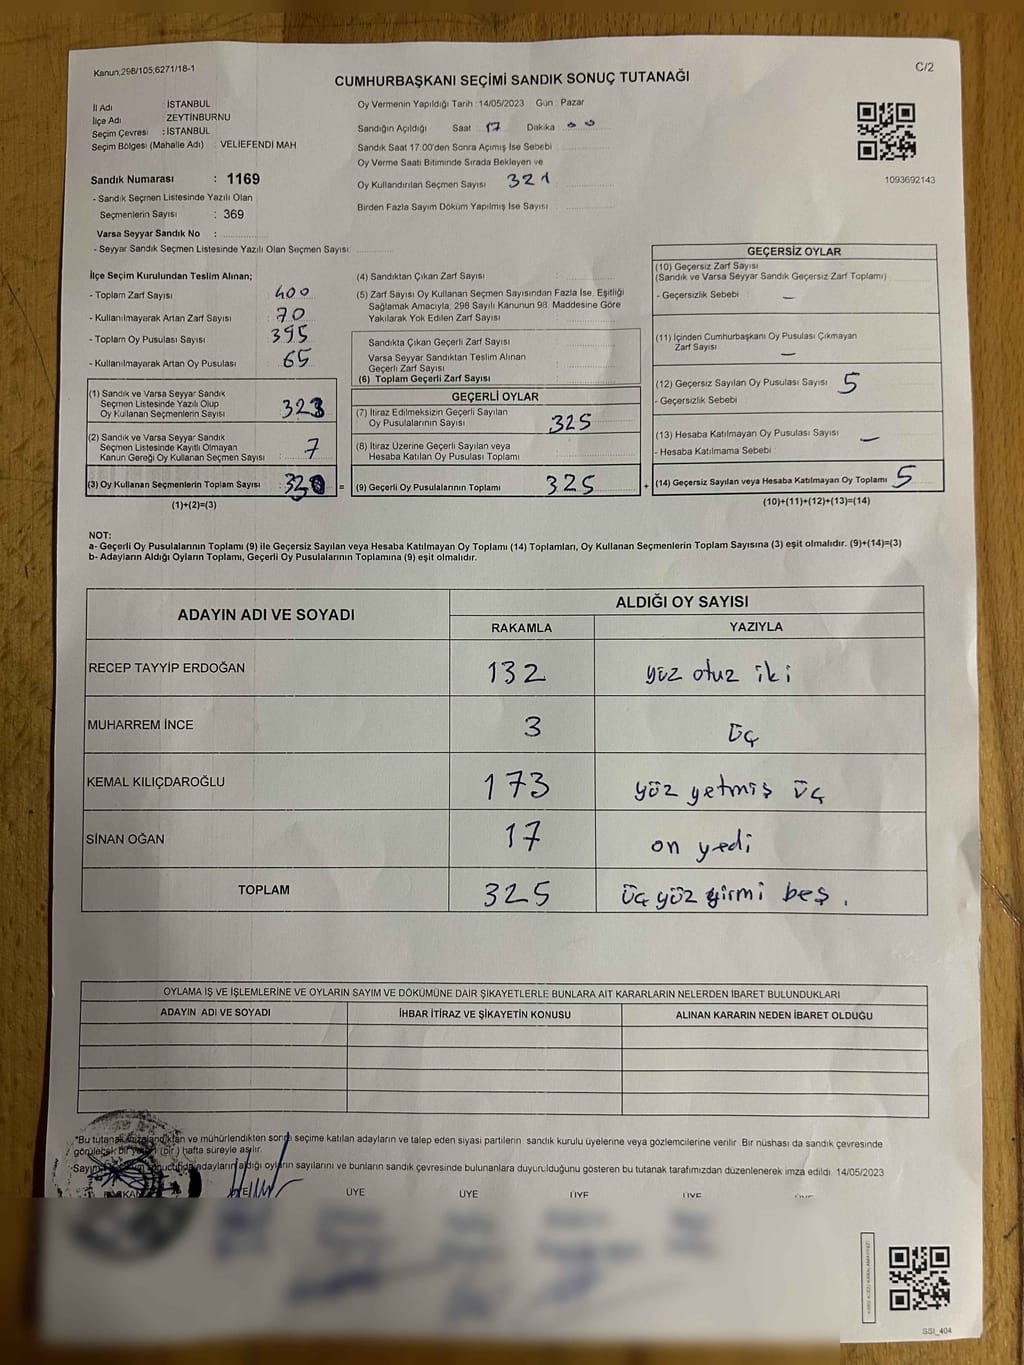 Kanun,298/105,6271/18-1
C/2
CUMHURBAŞKANI SEÇİMİ SANDIK SONUÇ TUTANAĞI
İl Adı : İSTANBUL
İlçe Adı : ZEYTİNBURNU
Seçim Çevresi : İSTANBUL
Seçim Bölgesi (Mahalle Adı) VELİEFENDİ MAH
Sandık Numarası : 1169
- Sandık Seçmen Listesinde Yazılı Olan
Seçmenlerin Sayısı : 369
Varsa Seyyar Sandık No :
- Seyyar Sandık Seçmen Listesinde Yazılı Olan Seçmen Sayısı:
Oy Vermenin Yapıldığı Tarih : 14/05/2023 Gün : Pazar
Sandığın Açıldığı Saat 17 Dakika 00
Sandık Saat 17.00'den Sonra Açımış İse Sebebi
Oy Verme Saati Bitiminde Sırada Bekleyen ve
Oy Kullandırılan Seçmen Sayısı 321
Birden Fazla Sayım Döküm Yapılmış İse Sayısı
1093692143
İlçe Seçim Kurulundan Teslim Alınan;
- Toplam Zarf Sayısı 400
- Kullanılmayarak Artan Zarf Sayısı 70
- Toplam Oy Pusulası Sayısı 395
- Kullanılmayarak Artan Oy Pusulası 65
(1) Sandık ve Varsa Seyyar Sandık
Seçmen Listesinde Yazılı Olup
Oy Kullanan Seçmenlerin Sayısı 323
(2) Sandık ve Varsa Seyyar Sandık
Seçmen Listesinde Kayıtlı Olmayan
Kanun Gereği Oy Kullanan Seçmen Sayısı 7
(3) Oy Kullanan Seçmenlerin Toplam Sayısı 330 =
(1)+(2)=(3)
(4) Sandıktan Çıkan Zarf Sayısı
(5) Zarf Sayısı Oy Kullanan Seçmen Sayısından Fazla İse, Eşitliği
Sağlamak Amacıyla, 298 Sayılı Kanunun 98. Maddesine Göre
Yakılarak Yok Edilen Zarf Sayısı
Sandıkta Çıkan Geçerli Zarf Sayısı
Varsa Seyyar Sandıktan Teslim Alınan
Geçerli Zarf Sayısı
(6) Toplam Geçerli Zarf Sayısı
GEÇERLİ OYLAR
(7) İtiraz Edilmeksizin Geçerli Sayılan
Oy Pusulalarının Sayısı 325
(8) İtiraz Üzerine Geçerli Sayılan veya
Hesaba Katılan Oy Pusulası Toplamı
(9) Geçerli Oy Pusulalarının Toplamı 325 +
GEÇERSİZ OYLAR
(10) Geçersiz Zarf Sayısı
(Sandık ve Varsa Seyyar Sandık Geçersiz Zarf Toplamı)
- Geçersizlik Sebebi —
(11) İçinden Cumhurbaşkanı Oy Pusulası Çıkmayan
Zarf Sayısı —
(12) Geçersiz Sayılan Oy Pusulası Sayısı 5
- Geçersizlik Sebebi
(13) Hesaba Katılmayan Oy Pusulası Sayısı —
- Hesaba Katılmama Sebebi
(14) Geçersiz Sayılan veya Hesaba Katılmayan Oy Toplamı 5
(10)+(11)+(12)+(13)=(14)
NOT:
a- Geçerli Oy Pusulalarının Toplamı (9) ile Geçersiz Sayılan veya Hesaba Katılmayan Oy Toplamı (14) Toplamları, Oy Kullanan Seçmenlerin Toplam Sayısına (3) eşit olmalıdır. (9)+(14)=(3)
b- Adayların Aldığı Oyların Toplamı, Geçerli Oy Pusulalarının Toplamına (9) eşit olmalıdır.
ADAYIN ADI VE SOYADI ALDIĞI OY SAYISI
RAKAMLA YAZIYLA
RECEP TAYYİP ERDOĞAN 132 yüz otuz iki
MUHARREM İNCE 3 üç
KEMAL KILIÇDAROĞLU 173 yüz yetmiş üç
SİNAN OĞAN 17 on yedi
TOPLAM 325 üç yüz yirmi beş.
OYLAMA İŞ VE İŞLEMLERİNE VE OYLARIN SAYIM VE DÖKÜMÜNE DAİR ŞİKAYETLERLE BUNLARA AİT KARARLARIN NELERDEN İBARET BULUNDUKLARI
ADAYIN ADI VE SOYADI İHBAR İTİRAZ VE ŞİKAYETİN KONUSU ALINAN KARARIN NEDEN İBARET OLDUĞU
"Bu tutanak imzalandıktan ve mühürlendikten sonra seçime katılan adayların ve talep eden siyasi partilerin sandık kurulu üyelerine veya gözlemcilerine verilir. Bir nüshası da sandık çevresinde
görülecek bir yere (bir) hafta süreyle asılır.
adayların aldığı oyların sayılarını ve bunların sandık çevresinde bulunanlara duyurulduğunu gösteren bu tutanak tarafımızdan düzenlenerek imza edildi. 14/05/2023
BAŞKAN ÜYE ÜYE ÜYE ÜYE ÜYE ÜYE
SSI_404